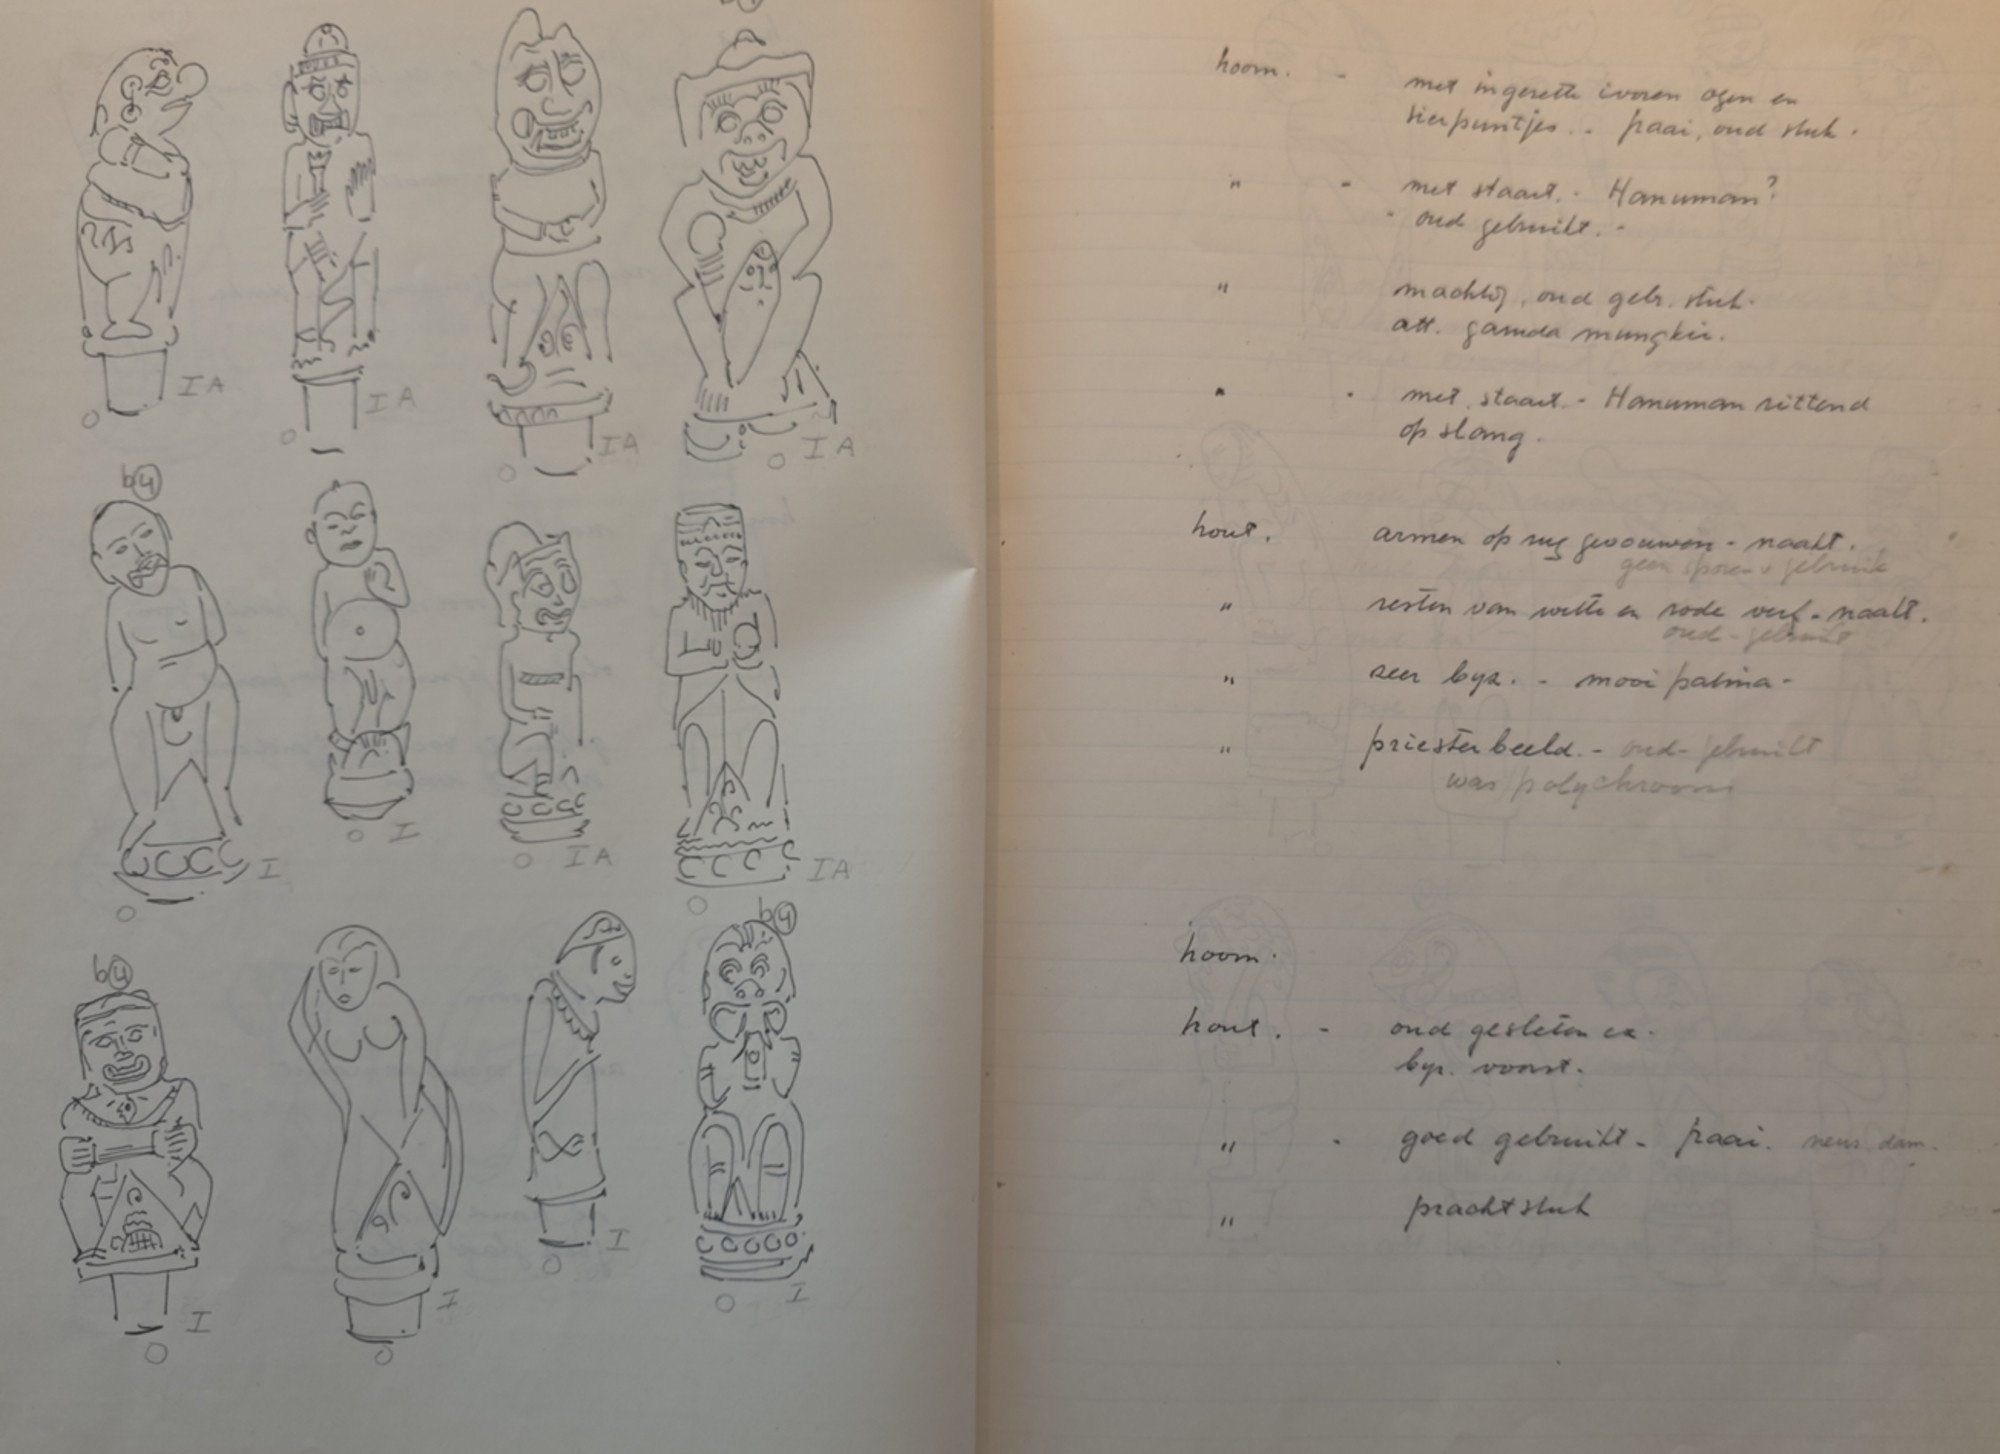 IA
IA
IA
IA
b4
I
I
IA
IA
b4
b4
I
I
I
I
hoorn. - met ingezette ivoren ogen en
sierpuntjes. - fraai, oud stuk.
" - met staart. - Hanuman?
oud gebruikt. -
" machtig, oud gebr. stuk.
att. garuda mungkir.
" - met staart. - Hanuman zittend
op slang.
hout. armen op rug gevouwen - naakt.
geen sporen v gebruik
" resten van witte en rode verf - naakt.
oud - gebruikt
" zeer byz. - mooi patina -
" priesterbeeld. - oud - gebruikt
was polychroom
hoorn.
hout. - oud gesleten ex.
byz. voorst.
" - goed gebruikt - fraai. neus dam.
" prachtstuk